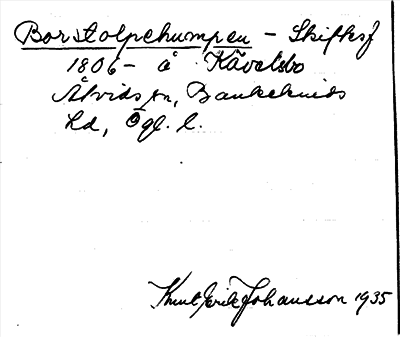 Borstolpehumpen - Skiftesf
1806 - å Kävelsbo
Åtvids sn, Bankekinds
hd, Ögl. l.
Knut Erik Johansson 1935